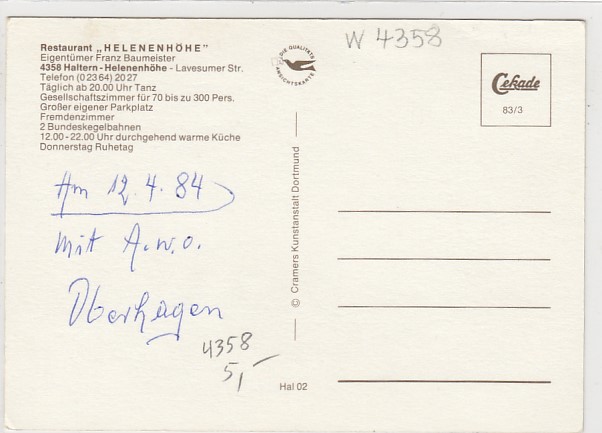 Restaurant „HELENENHÖHE"
Eigentümer Franz Baumeister
4358 Haltern - Helenenhöhe - Lavesumer Str.
Telefon (0 23 64) 20 27
Täglich ab 20.00 Uhr Tanz
Gesellschaftszimmer für 70 bis zu 300 Pers.
Großer eigener Parkplatz
Fremdenzimmer
2 Bundeskegelbahnen
12.00 - 22.00 Uhr durchgehend warme Küche
Donnerstag Ruhetag
DIE QUALITÄTS
ANSICHTSKARTE
W 4358
Cekade
83/3
Am 12.4.84
mit A.W.O.
Oberhagen
4358
5,-
© Cramers Kunstanstalt Dortmund
Hal 02